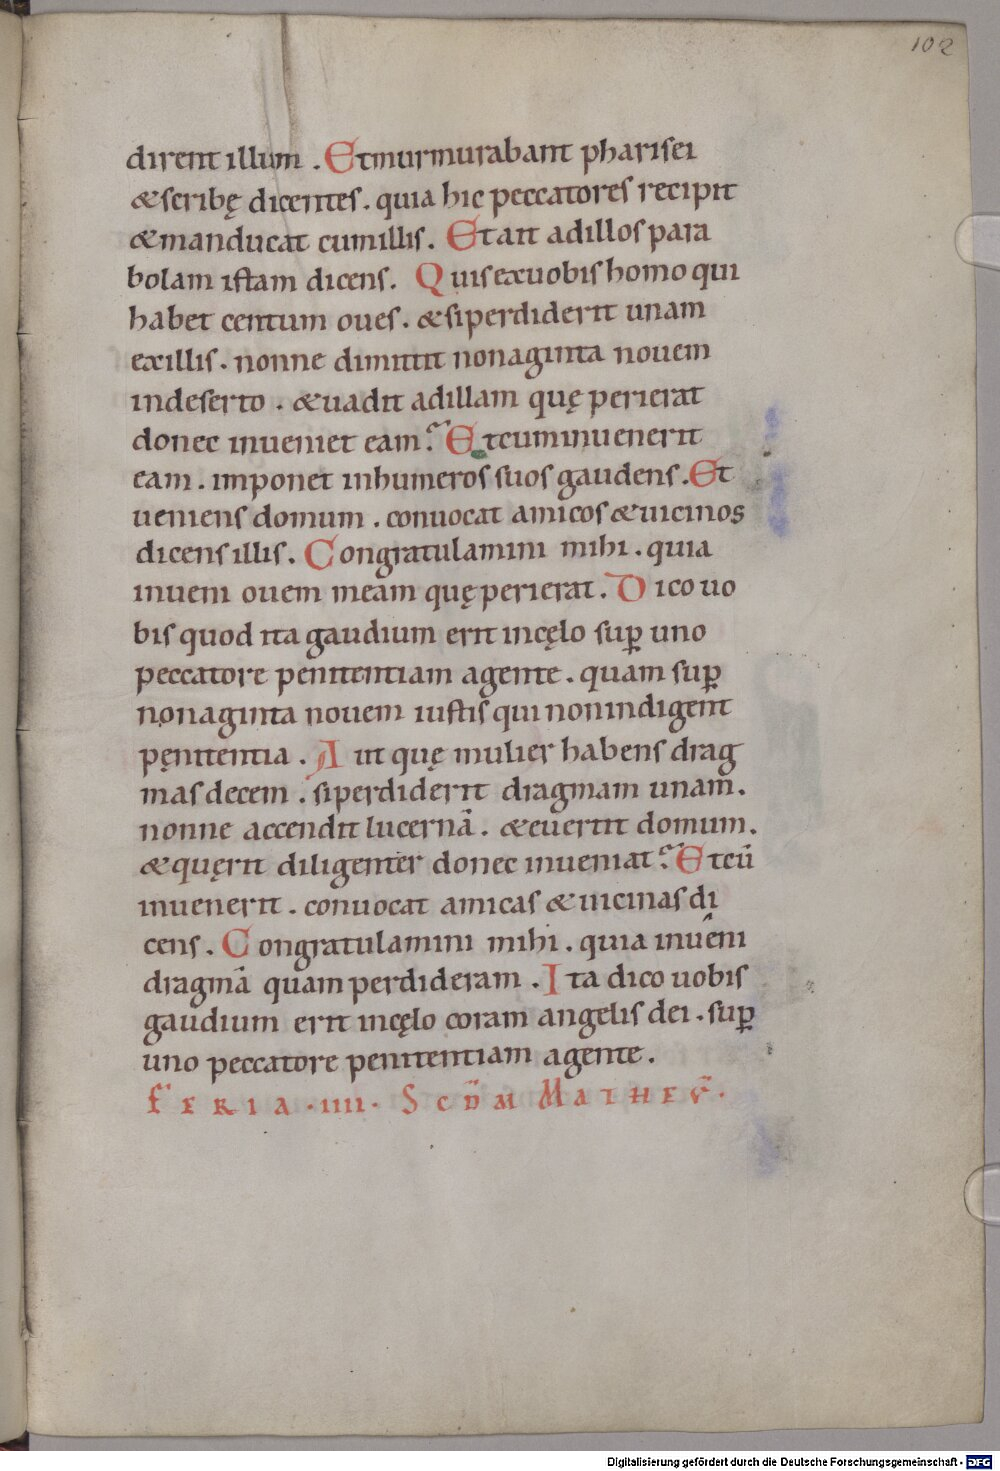 102
dirent illum . Et murmurabant pharisei
& scribę dicentes . quia hic peccatores recipit
& manducat cum illis . Et ait ad illos para
bolam istam dicens . Quis ex uobis homo qui
habet centum oues . & si perdiderit unam
ex illis . nonne dimittit nonaginta nouem
in deserto . & uadit ad illam quę perierat
donec inueniet eam? Et cum inuenerit
eam . imponet in humeros suos gaudens . Et
ueniens domum . conuocat amicos & uicinos
dicens illis . Congratulamini mihi . quia
inueni ouem meam quę perierat . Dico uo
bis quod ita gaudium erit in cęlo sup̄ uno
peccatore penitentiam agente . quam sup̄
nonaginta nouem iustis qui non indigent
pęnitentia . Aut quę mulier habens drag
mas decem . si perdiderit dragmam unam .
nonne accendit lucernā . & euertit domum .
& quęrit diligenter donec inueniat? Et cū
inuenerit . conuocat amicas & uicinas di
cens . Congratulamini mihi . quia inueni
dragmā quam perdideram . Ita dico uobis
gaudium erit in cęlo coram angelis dei . sup̄
uno peccatore penitentiam agente .
FERIA . IIII . SCDM MATHEV̄ .
Digitalisierung gefördert durch die Deutsche Forschungsgemeinschaft - DFG